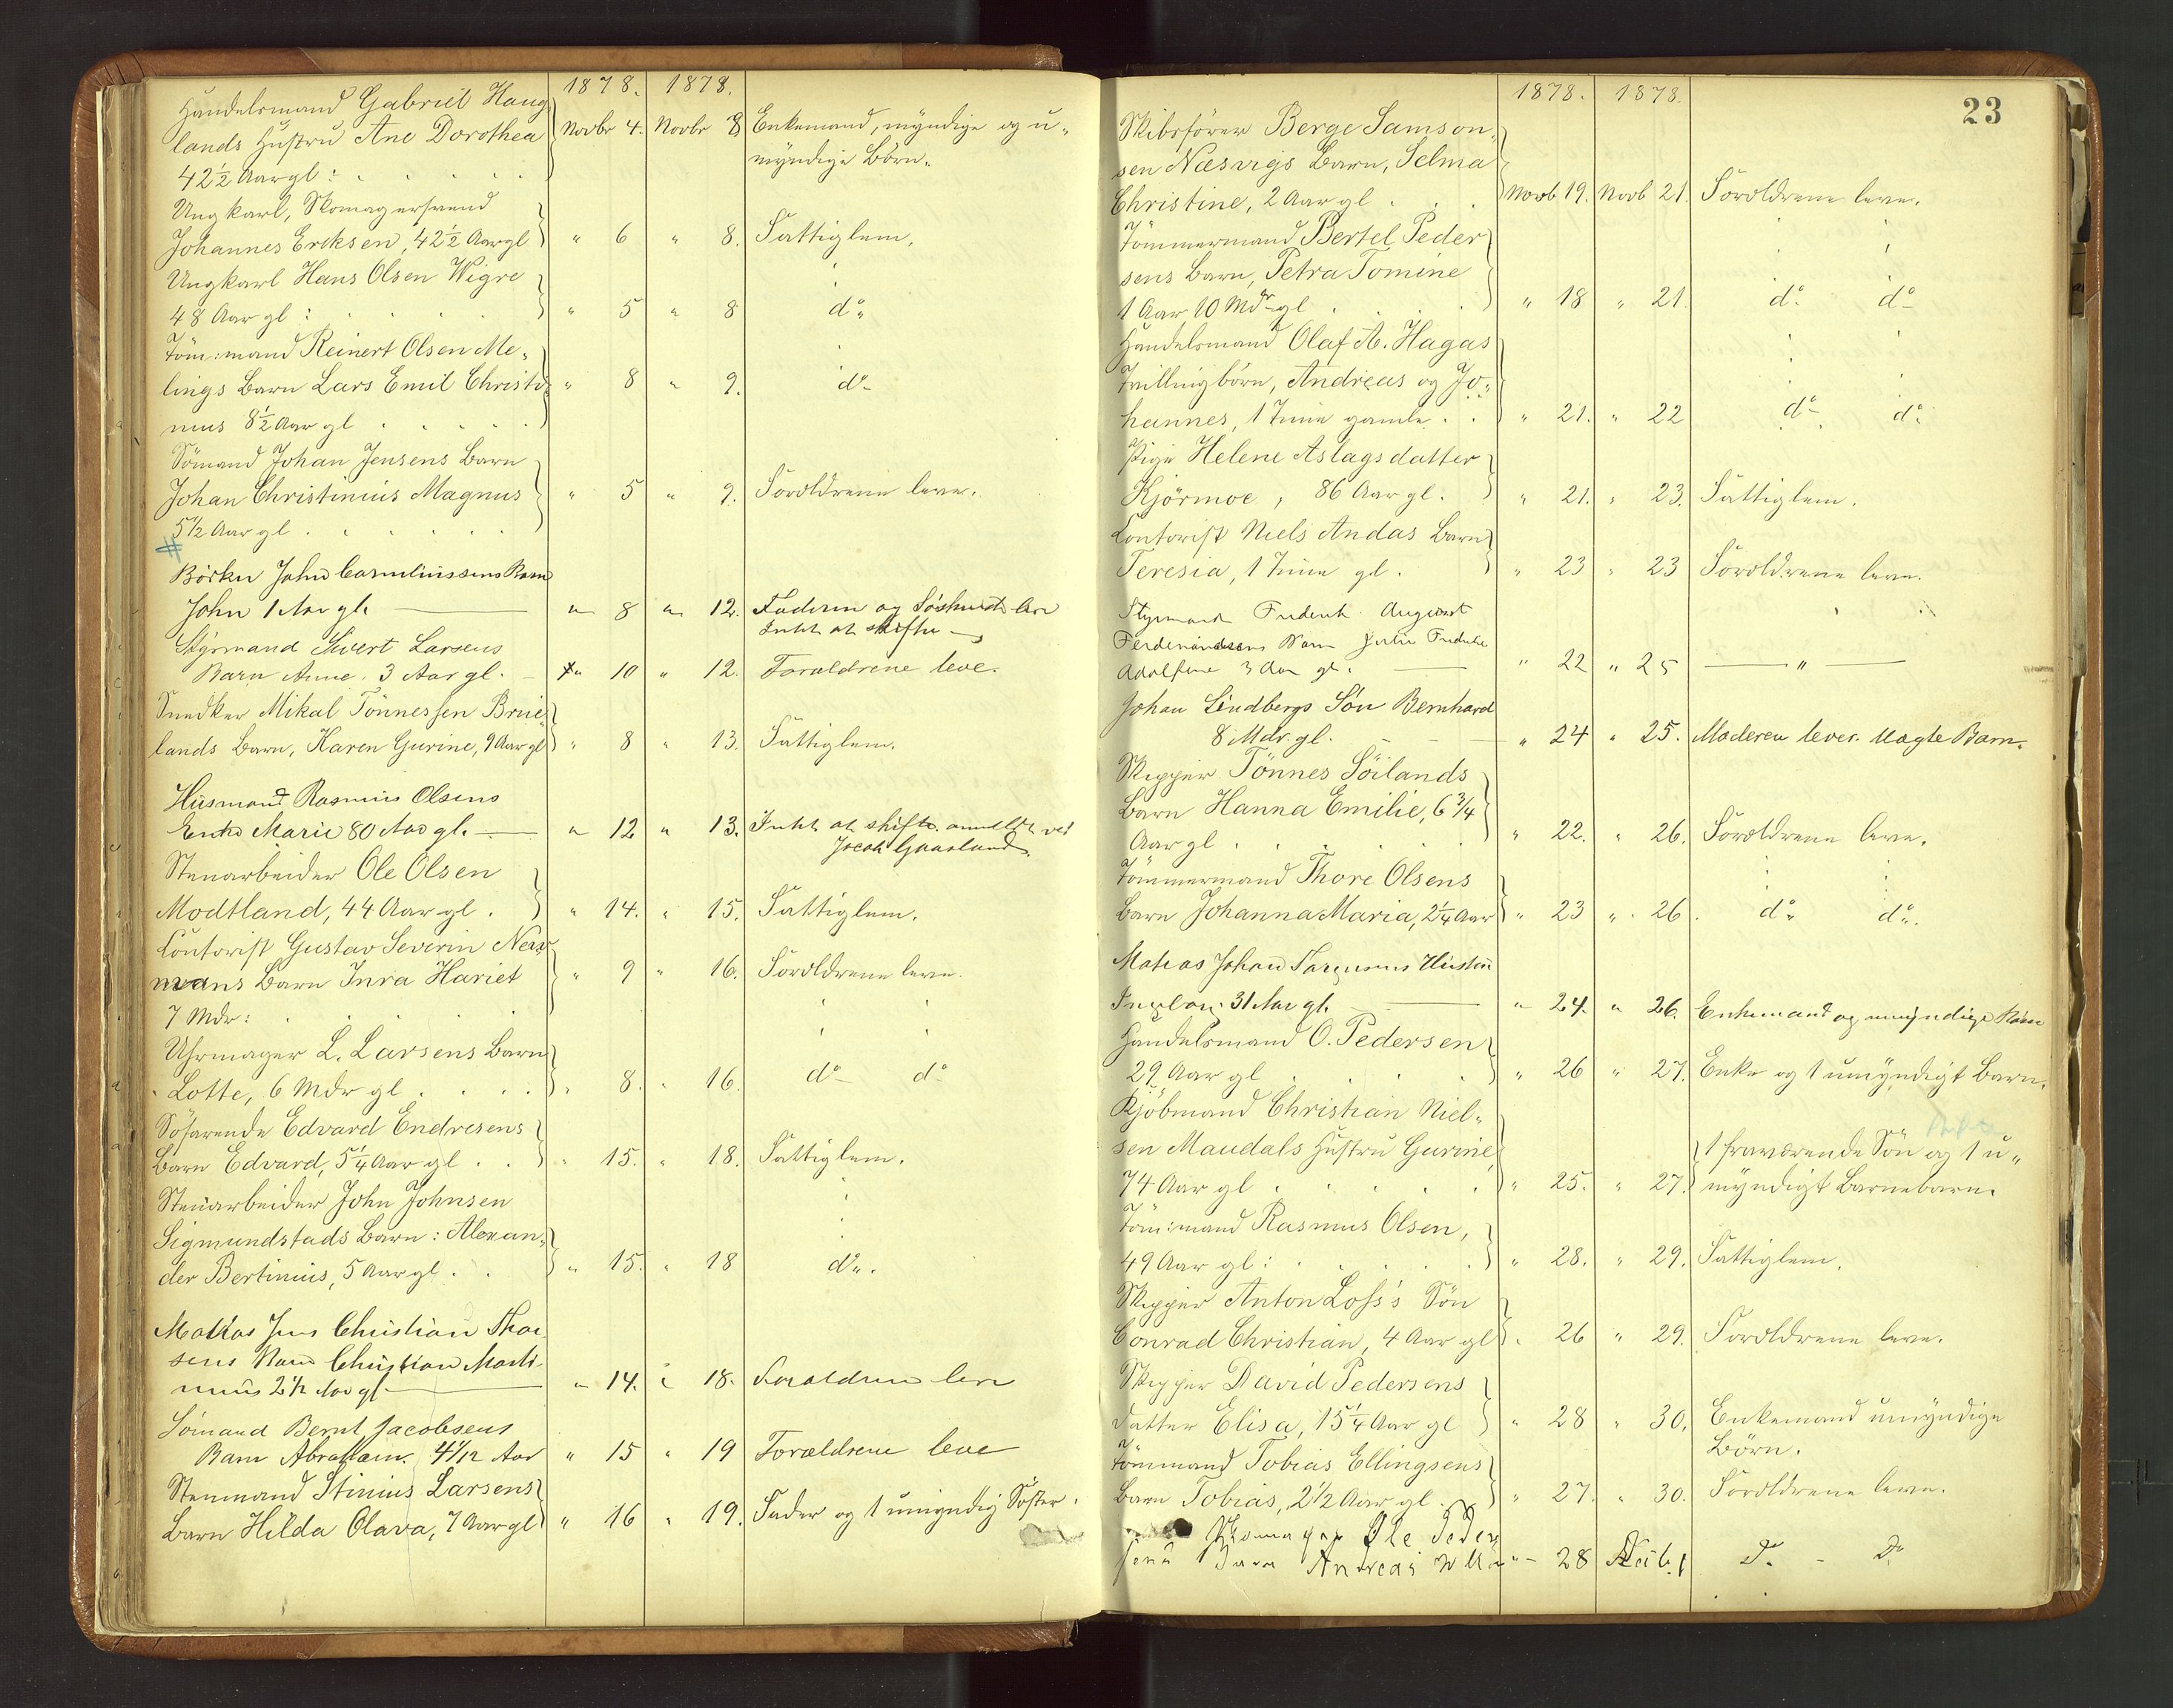 1878. 1878.
Handelsmand Gabriel Haug
lands Hustru Ane Dorothea Novbr 4. Novbr 8 Enkemand, myndige og u-
42½ Aar gl: myndige Börn.
Ungkarl, Skomagersvend
Johannes Eriksen, 42½ Aar gl " 6 " 8. Fattiglem.
Ungkarl Hans Olsen Wigre
48 Aar gl: " 5 " 8 do
Töm:mand Reinert Olsen Me-
lings Barn Lars Emil Christi- " 8 " 9. do
nius 8½ Aar gl
Sömand Johan Jensens Barn
Johan Christinius Magnus " 5 " 9. Forældrene leve.
5½ Aar gl
#
Bödker John Cornelinssens Barn
John 1 Aar gl. " 8 " 12. Faderen og Söskende lev
Intet at skifte
Styrmand Sivert Larsens
Barn Anne. 3 Aar gl. " 10 " 12. Forældrene leve.
Snedker Mikal Tönnessen Brue-
lands Barn, Karen Gurine, 9 Aar gl " 8 " 13. Fattiglem.
Husmand Rasmus Olsens
Enke Marie 80 Aar gl. " 12 " 13. Intet at skifte anmeldt ved
Jacob Gaarland.
Stenarbeider Ole Olsen
Modtland, 44 Aar gl. " 14. " 15. Fattiglem.
Contorist Gustav Severin New
mans Barn Inra Hariet " 9 " 16. Forældrene leve.
7 Mdr:
Uhrmager L. Larsens Barn
Lotte, 6 Mdr gl " 8. " 16. do do
Söfarende Edvard Endresens
Barn Edvard, 5¼ Aar gl " 15. " 18. Fattiglem.
Stenarbeider John Johnsen
Sigmundstads Barn: Alexan-
der Bertinius, 5 Aar gl. " 15. " 18 do.
Matros Jens Christian Thor
sens Barn Christian Marti-
nius 2½ Aar gl " 14. " 18. Forældrene leve
Sömand Bernt Jacobsens
Barn Abraham. 4 1/12 Aar " 15 " 19 Forældrene leve
Stenmand Stinius Larsens
Barn Hilda Olava, 7 Aar gl " 16 " 19. Fader og 1 umyndig Söster.
1878. 1878. 23
Skibsförer Berge Samson-
sen Næsvigs Barn, Selma
Christine, 2 Aar gl. Novb 19. Novb 21. Forældrene leve.
Tömmermand Bertel Peder
sens Barn, Petra Tomine
1 Aar 10 Mdr gl " 18 " 21. do do
Handelsmand Olaf A. Hagas
Tvillingbörn, Andreas og Jo-
hannes, 1 Time gamle. " 21. " 22 do do
Pige Helene Aslagsdatter
Kjörmoe, 86 Aar gl. " 21. " 23. Fattiglem.
Contorist Niels Andas Barn
Teresia, 1 Time gl. " 23 " 23 Forældrene leve.
Styrmand Frederik August
Ferdinandsens Barn Julie Fredrike
Adolfine 3 Aar gl. " 22 " 25 "
Johan Lindbergs Sön Bernhard
8 Mdr. gl. " 24 " 25. Moderen lever. Uægte Barn.
Skipper Tönnes Söilands
Barn Hanna Emilie, 6 3/4
Aar gl " 22. " 26. Forældrene leve.
Tömmermand Thore Olsens
Barn Johanna Maria, 2¼ Aar " 23 " 26. do do.
Matros Johan Hustru
31 Aar gl. " 24. " 26. Enkemand og umyndige Börn
Handelsmand O. Pedersen
29 Aar gl " 26 " 27. Enke og 1 umyndigt Barn.
Kjöbmand Christian Niel-
sen Maudals Hustru Gurine, 1 fraværende Sön og 1 u-
74 Aar gl " 25. " 27. myndigt Barnebarn.
Töm:mand Rasmus Olsen,
49 Aar gl: " 28. " 29. Fattiglem.
Skipper Anton Loss's Sön
Conrad Christian, 4 Aar gl " 26 " 29. Forældrene leve.
Skipper David Pedersens
Datter Elisa, 15¼ Aar gl " 28 " 30. Enkemand umyndige
Börn.
Tömmand Tobias Ellingsens
Barn Tobias, 2½ Aar gl. " 27. " 30. Forældrene leve.
Skomager Ole Peder
sens Barn Andreas " 28 Decb. 1 Do - Do